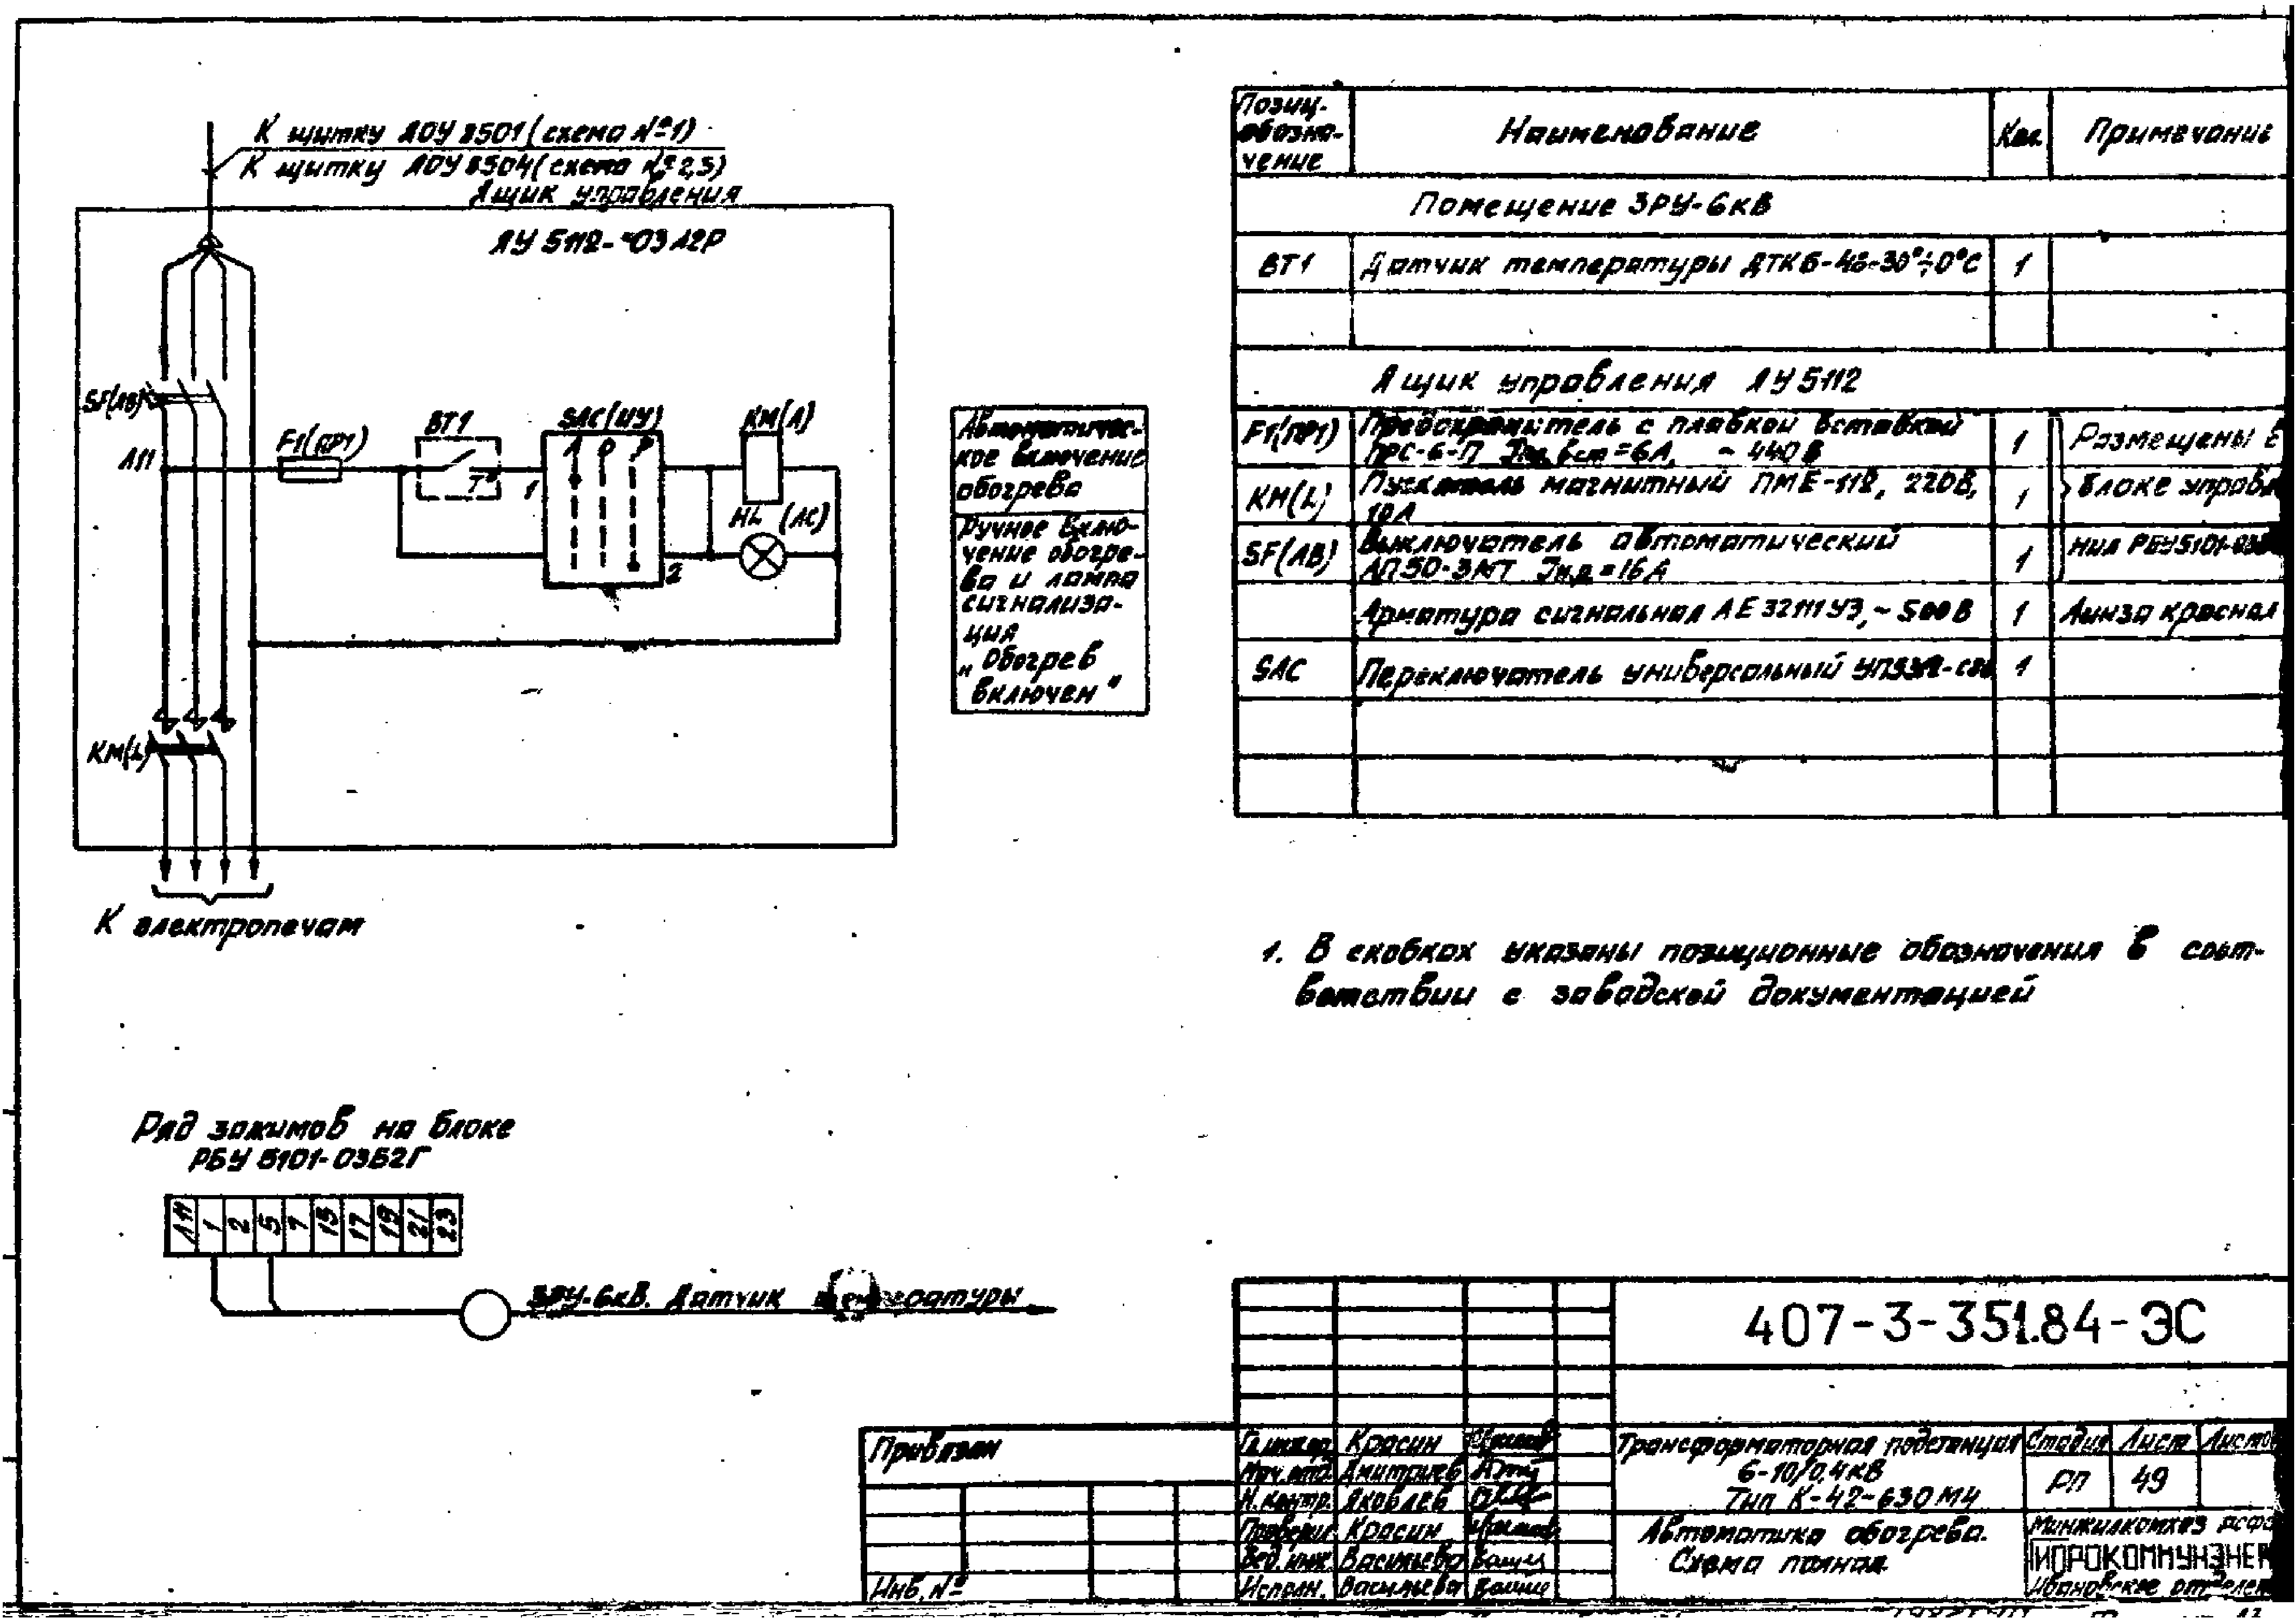 К щитку ЯОУ 8501 (схема №1)
К щитку ЯОУ 8504 (схема №2,3)
Ящик управления
ЯУ 5112-03А2Р
SF(АВ)
А11
F1(ПР1)
ВТ1
Т°
1
SAC(ИУ)
А О Р
2
КМ(Л)
HL (ЛС)
КМ(L)
К электропечам
Автоматичес-
кое включение
обогрева
Ручное включ-
чение обогре-
ва и лампа
сигнализа-
ция
„Обогрев
включен"
Позиц.
обозна-
чение
Наименование
Кол.
Примечание
Помещение ЗРУ-6кВ
ВТ1
Датчик температуры ДТКБ-46-30°÷0°С
1
Ящик управления ЯУ5112
F1(ПР1)
Предохранитель с плавкой вставкой
ПРС-6-П Iпл.вст=6А, ~440В
1
Размещены в
КМ(L)
Пускатель магнитный ПМЕ-112, 220В,
10А
1
блоке управле
SF(АВ)
Выключатель автоматический
АП50-3МТ Iн.р=16А
1
ния РБУ5101-03
Арматура сигнальная АЕ 32111У3, ~500В
1
Линза красная
SAC
Переключатель универсальный
1
1. В скобках указаны позиционные обозначения в соот-
ветствии с заводской документацией
Ряд зажимов на блоке
РБУ 5101-03Б2Г
А11 1 2 5 7 15 17 19 21 23
ЗРУ-6кВ. Датчик температуры
407-3-351.84-ЭС
Привязан
Инв.№
Гл.инж.пр. Красин
Нач.отд. Дмитриев
Н.контр. Яковлев
Проверил Красин
Вед.инж. Васильева
Исполн. Васильева
Трансформаторная подстанция
6-10/0,4кВ
Тип К-42-630М4
Стадия Лист Листов
РП 49
Автоматика обогрева.
Схема полная
Минжилкомхоз РСФС
ГИПРОКОММУНЭНЕР
Ивановское отделен